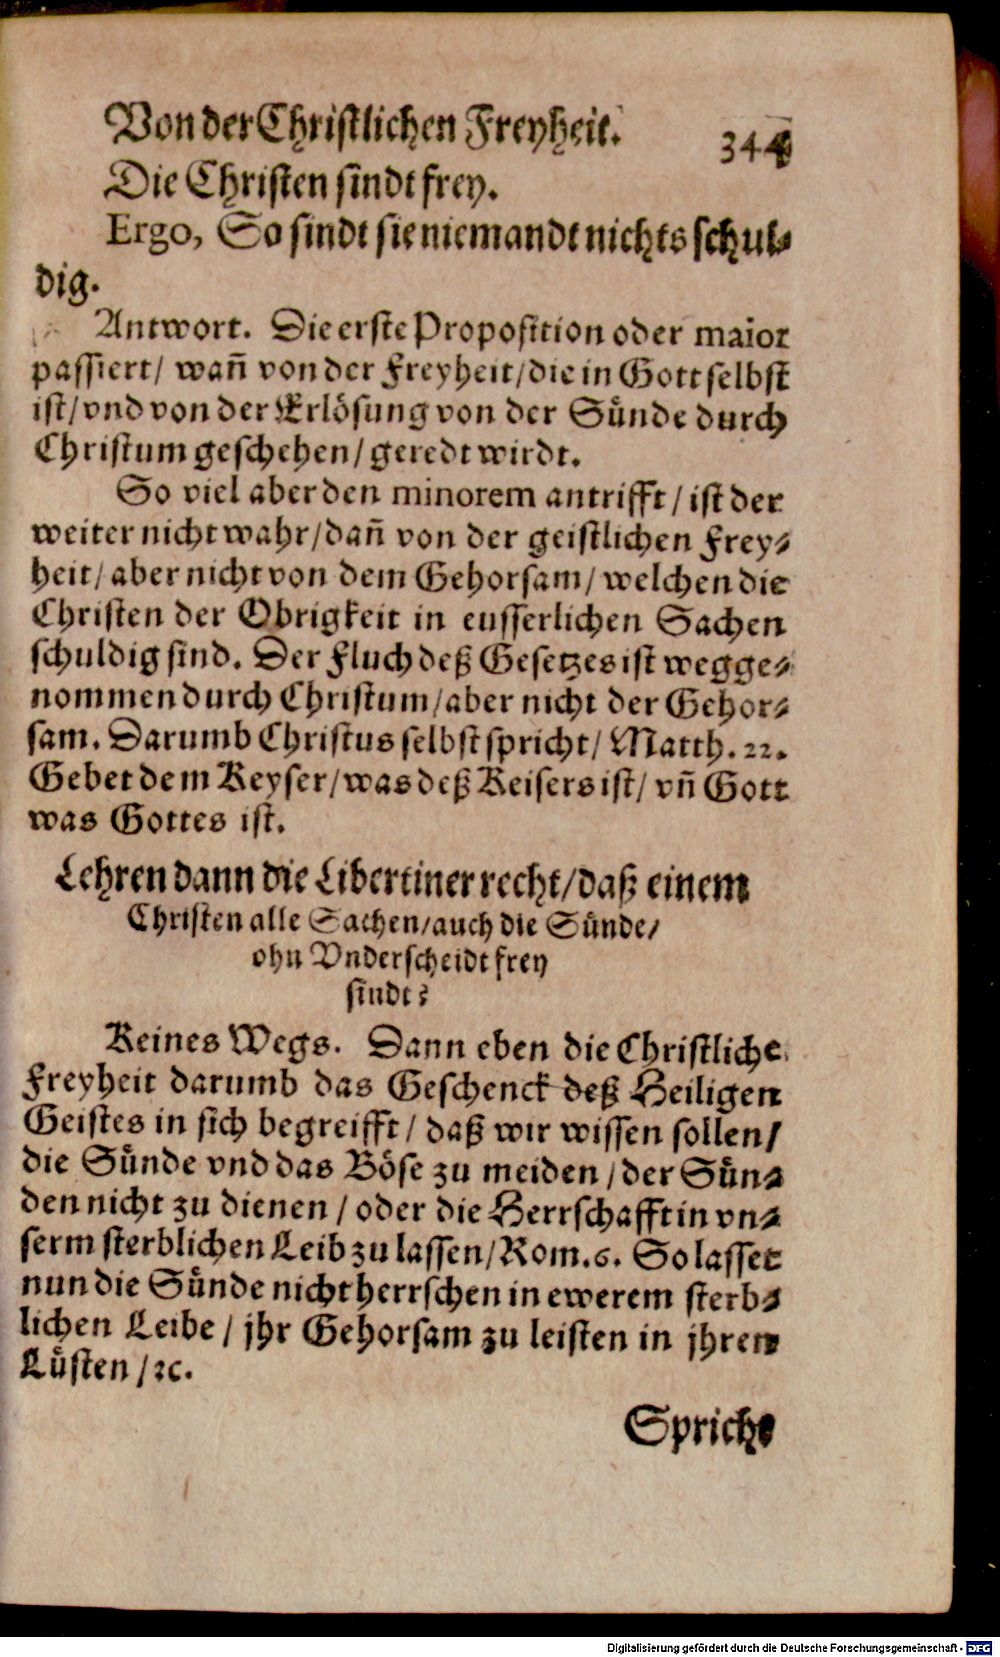 Von der Christlichen Freyheit. 344
Die Christen sindt frey.
Ergo, So sindt sie niemandt nichts schul⸗
dig.
Antwort. Die erste Proposition oder maior
passiert/ wañ von der Freyheit/ die in Gott selbst
ist/ vnd von der Erlösung von der Sünde durch
Christum geschehen/ geredt wirdt.
So viel aber den minorem antrifft/ ist der
weiter nicht wahr/ dañ von der geistlichen Frey⸗
heit/ aber nicht von dem Gehorsam/ welchen die
Christen der Obrigkeit in eusserlichen Sachen
schuldig sind. Der Fluch deß Gesetzes ist wegge⸗
nommen durch Christum/ aber nicht der Gehor⸗
sam. Darumb Christus selbst spricht/ Matth. 22.
Gebet dem Keyser/ was deß Keisers ist/ vñ Gott
was Gottes ist.
Lehren dann die Libertiner recht/ daß einem
Christen alle Sachen/ auch die Sünde/
ohn Vnderscheidt frey
sindt?
Keines Wegs. Dann eben die Christliche
Freyheit darumb das Geschenck deß Heiligen
Geistes in sich begreifft/ daß wir wissen sollen/
die Sünde vnd das Böse zu meiden/ der Sün⸗
den nicht zu dienen/ oder die Herrschafft in vn⸗
serm sterblichen Leib zu lassen/ Rom. 6. So lasset
nun die Sünde nicht herrschen in ewerem sterb⸗
lichen Leibe/ jhr Gehorsam zu leisten in jhren
Lüsten/ ꝛc.
Spricht
Digitalisierung gefördert durch die Deutsche Forschungsgemeinschaft - DFG